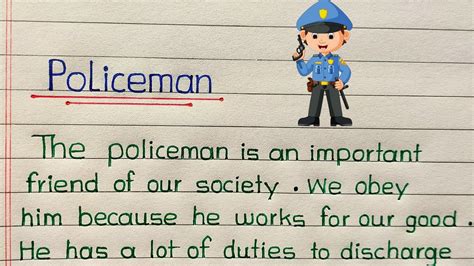 Policeman
The policeman is an important
friend of our society. We obey
him because he works for our good.
He has a lot of duties to discharge